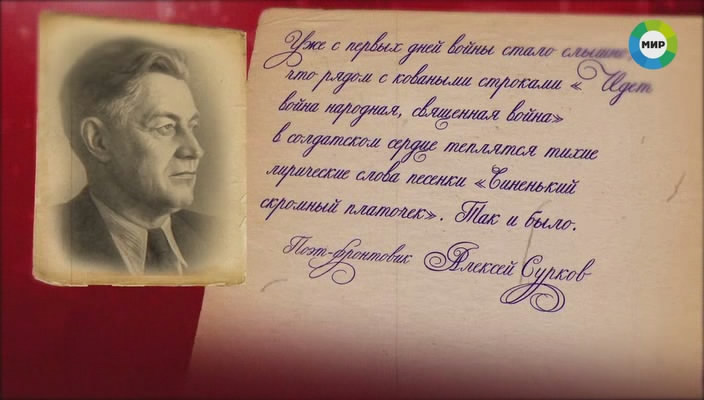 Уже с первых дней войны стало слышно,
МИР
что рядом с коваными строками «Идет
война народная, священная война»
в солдатском сердце теплятся тихие
лирические слова песенки «Синенький
скромный платочек». Так и было.
Поэт-фронтовик Алексей Сурков